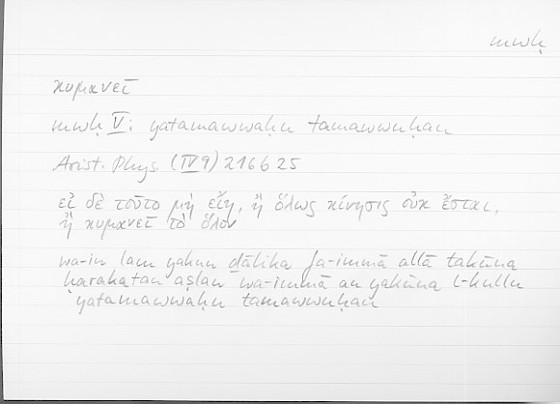 mwḥ
κυμανεῖ
mwḥ V: yatamawwaḥu tamawwuḥan
Arist. Phys. (IV 9) 216b25
εἰ δὲ τοῦτο μὴ εἴη, ἢ ὅλως κίνησις οὐκ ἔσται,
ἢ κυμανεῖ τὸ ὅλον
wa-in lam yakun ḏālika fa-immā allā takūna
ḥarakatan aṣlan wa-immā an yakūna l-kullu
yatamawwaḥu tamawwuḥan